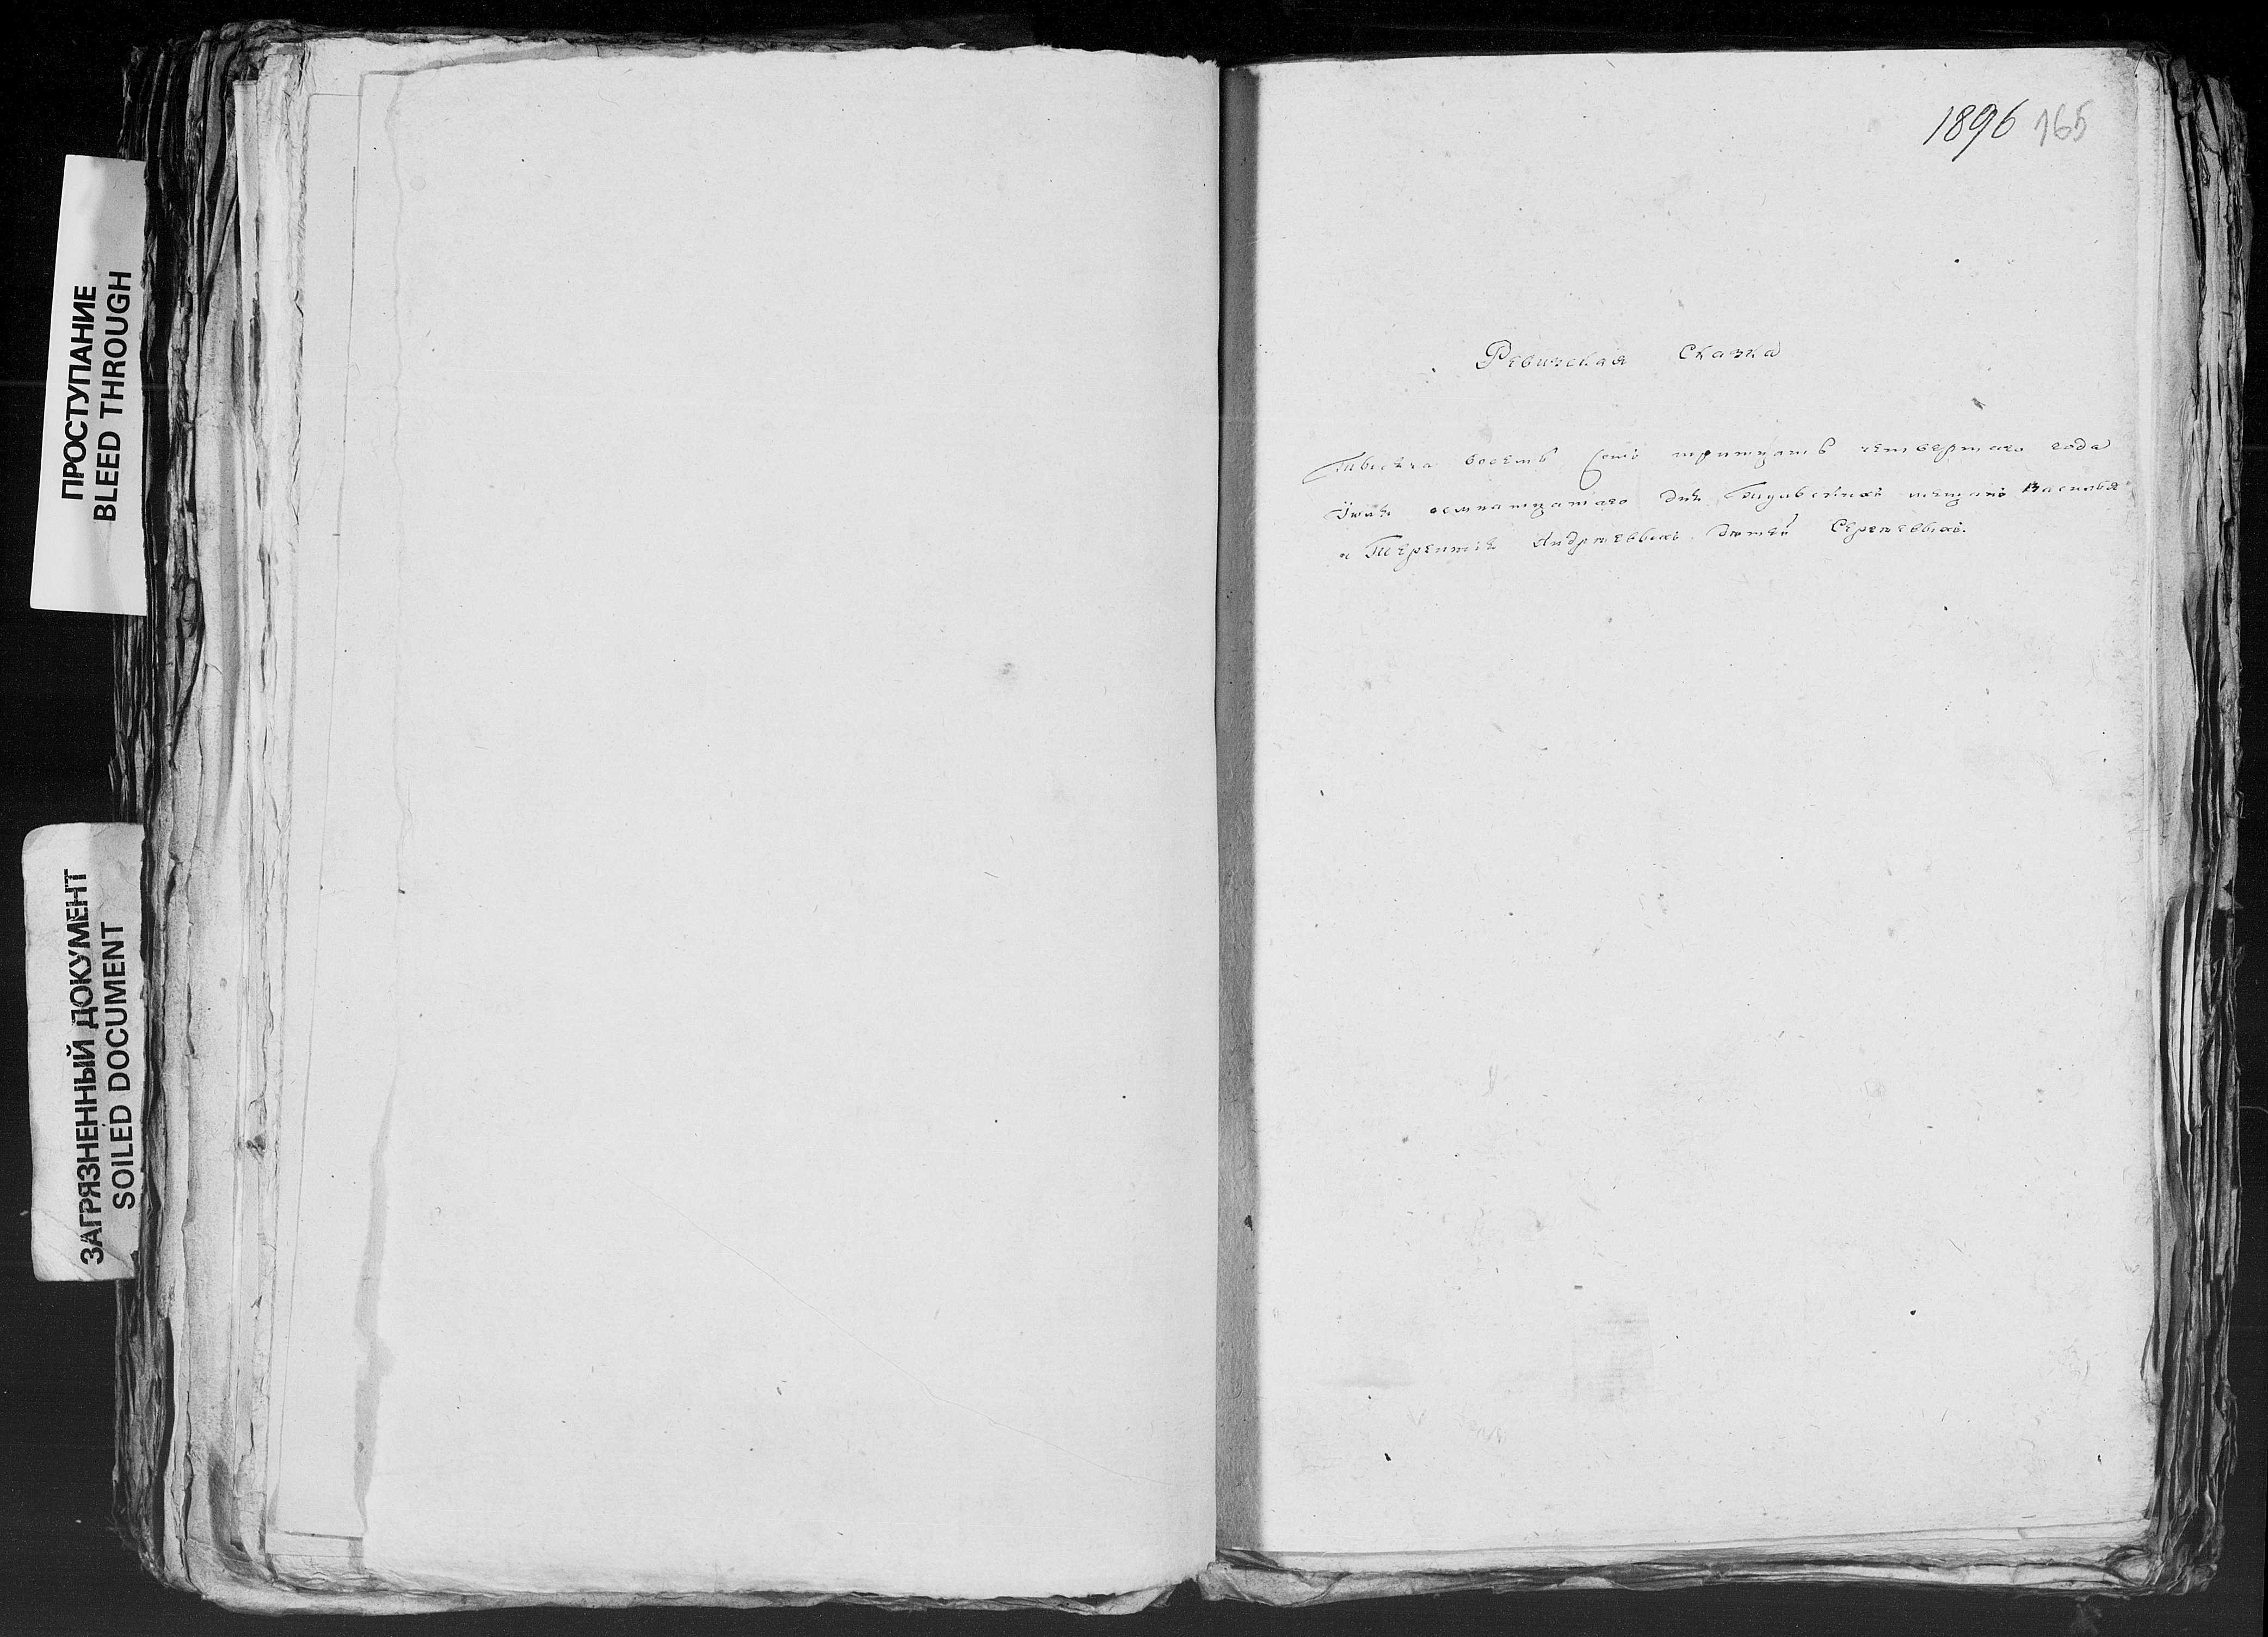 ПРОСТУПАНИЕ
BLEED THROUGH
ЗАГРЯЗНЕННЫЙ ДОКУМЕНТ
SOILED DOCUMENT
1896 165
Ревизская Сказка
Тысеча восемь сотъ тритцать четвертаго года
Іюня осмнатцатаго дня мещанъ Василья
и Терентія Андреевыхъ детей